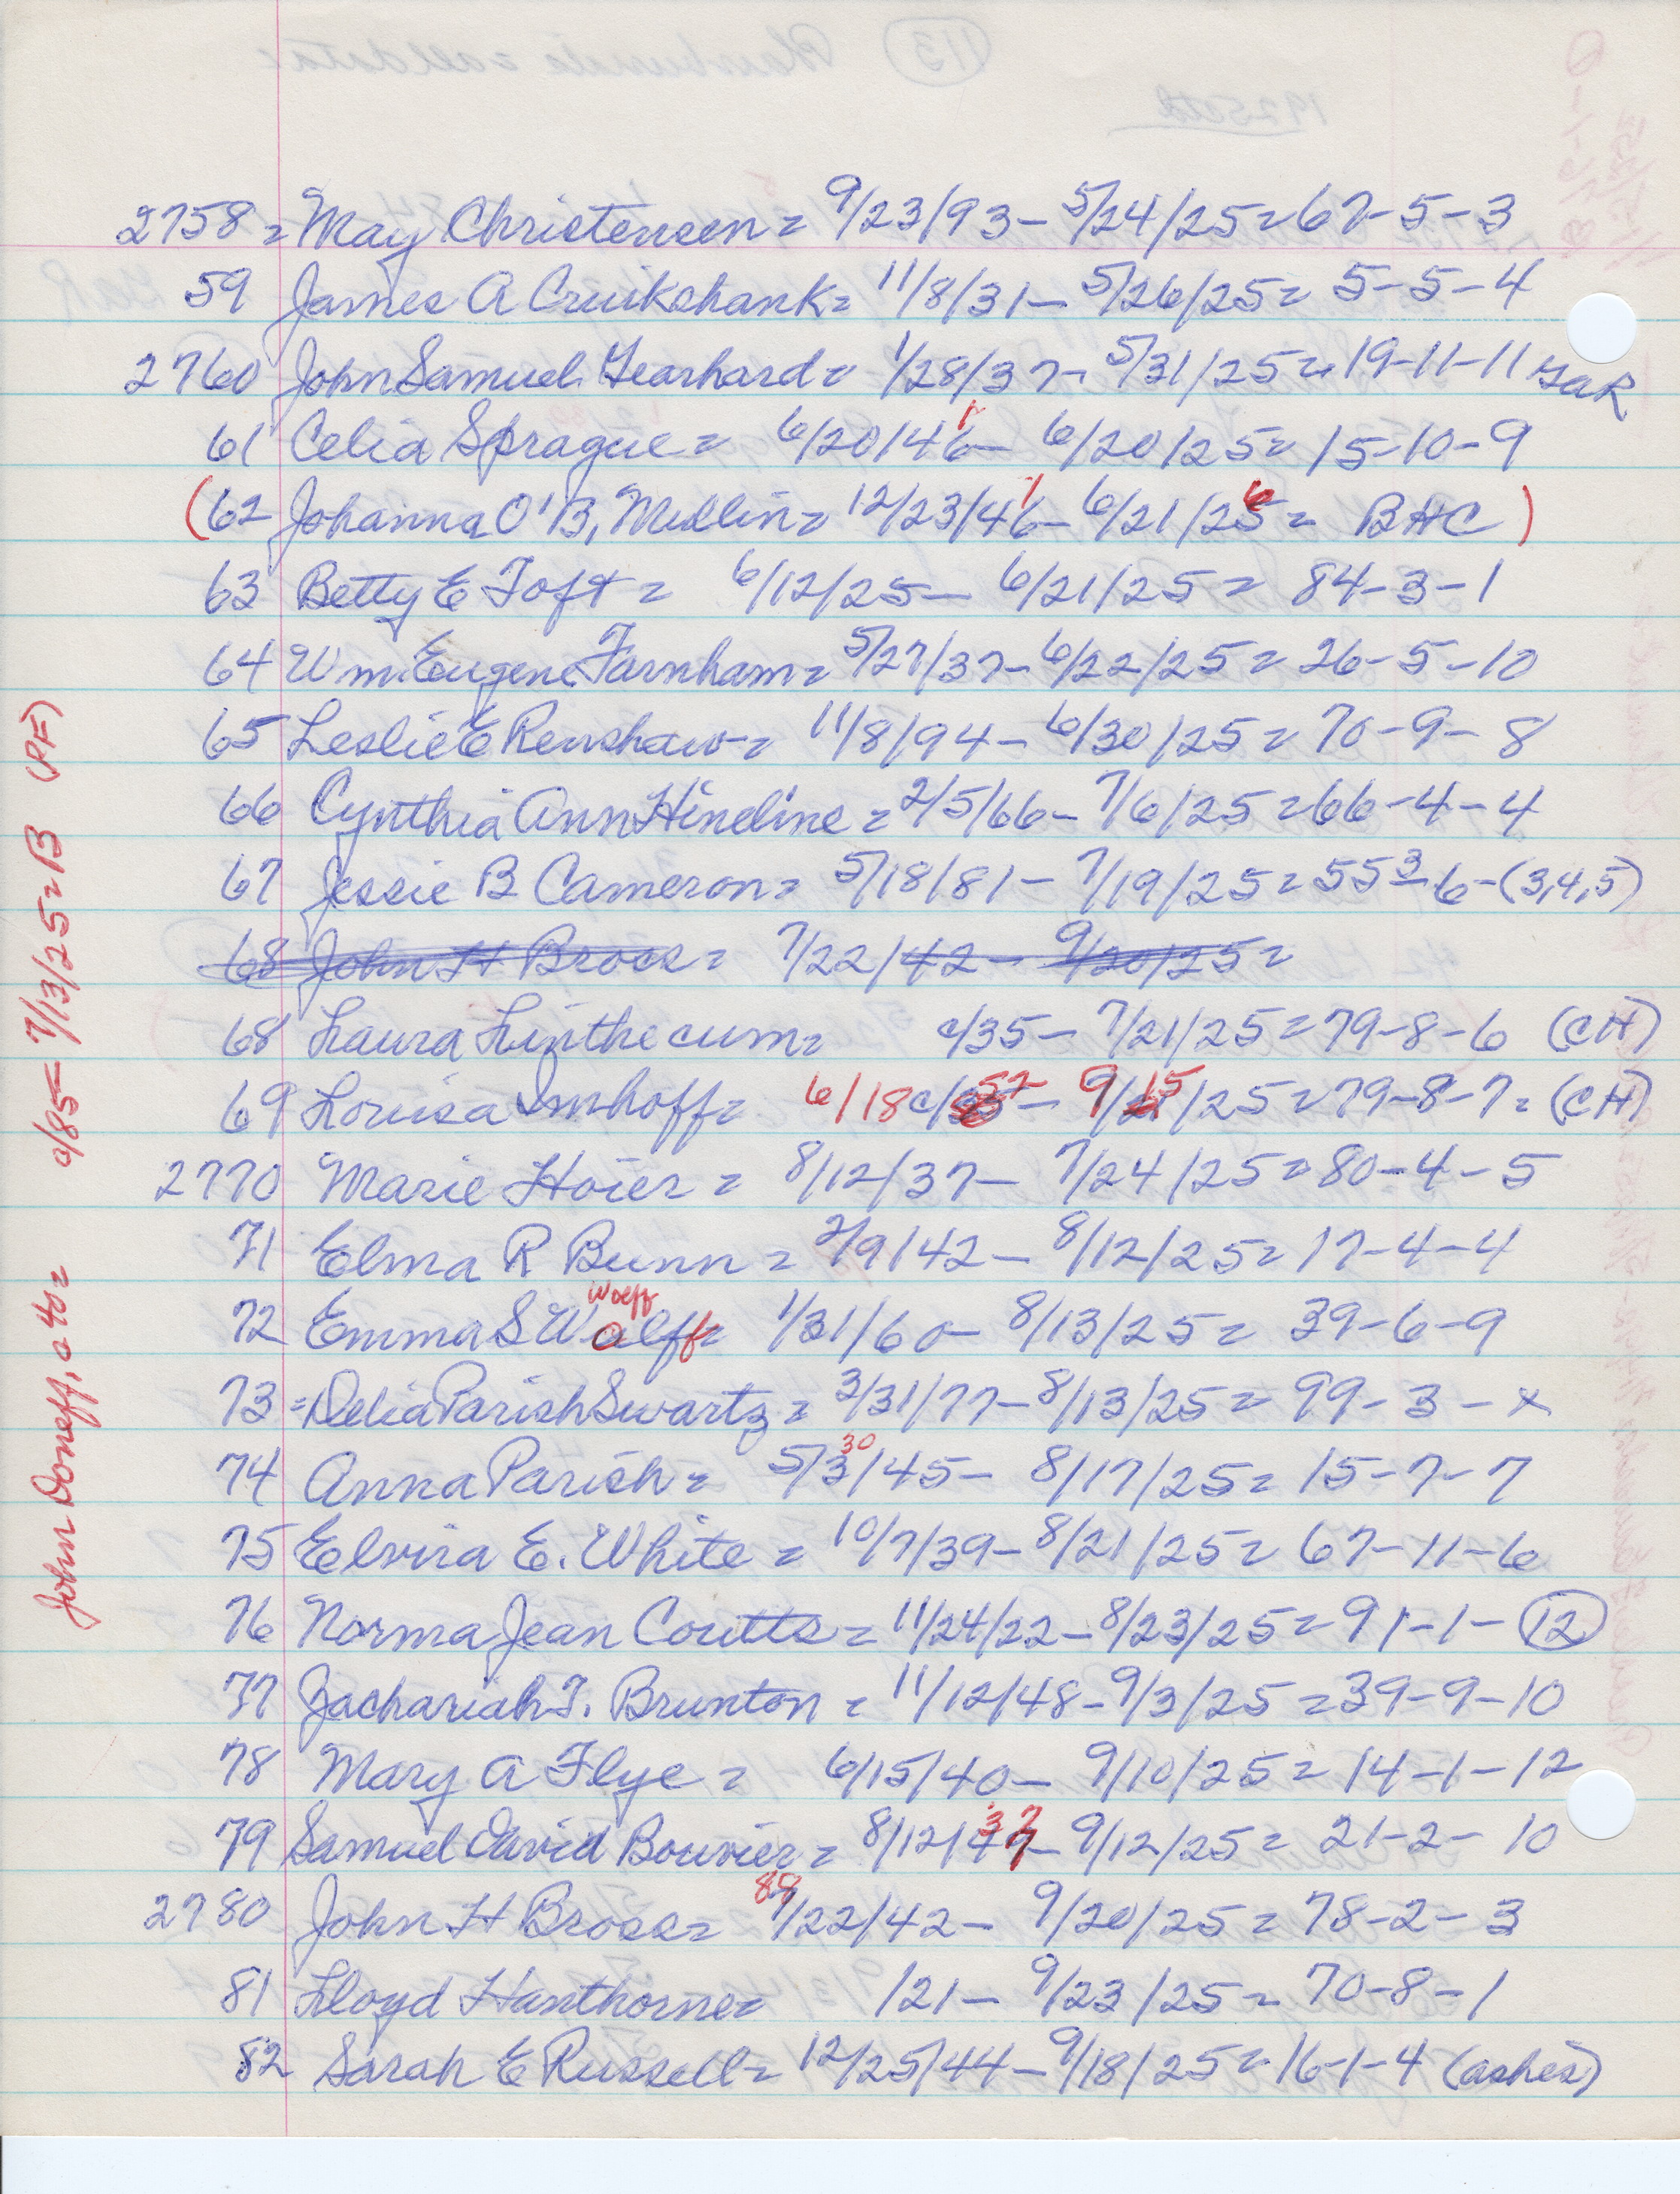 2758 = May Christensen = 9/23/93 - 5/24/25 = 67-5-3
59 James A Cruikshank = 11/8/31 - 5/26/25 = 5-5-4
2760 John Samuel Gearhard = 1/28/37 - 5/31/25 = 19-11-11 GAR
61 Celia Sprague = 6/20/46 1 - 6/20/25 = 15-10-9
(62 Johanna O'B, Mullin = 12/23/46 1 - 6/21/25 6 = BHC )
63 Betty E Toft = 6/12/25 - 6/21/25 = 84-3-1
64 Wm. Eugene Farnham = 5/27/37 - 6/22/25 = 26-5-10
65 Leslie E Renshaw = 11/8/94 - 6/30/25 = 70-9-8
66 Cynthia Ann Hineline = 2/5/66 - 7/6/25 = 66-4-4
67 Jessie B Cameron = 5/18/81 - 7/19/25 = 55 3 - 6 - (3,4,5)
68 John H Bross = 7/22/42 - 9/20/25 =
68 Laura Linthecum = c/35 - 7/21/25 = 79-8-6 (CH)
69 Louisa Imhoff = 6/18 c/52 - 9/15/25 = 79-8-7 = (CH)
2770 Marie Hoier = 8/12/37 - 7/24/25 = 80-4-5
71 Elma R Bunn = 2/9/42 - 8/12/25 = 17-4-4
Woeff
72 Emma S Wolff = 1/31/60 - 8/13/25 = 39-6-9
73 = Delia Parish Swartz = 3/31/77 - 8/13/25 = 99-3-x
74 Anna Parish = 5/3 30/45 - 8/17/25 = 15-7-7
75 Elvira E. White = 10/7/39 - 8/21/25 = 67-11-6
76 Norma Jean Coutts = 11/24/22 - 8/23/25 = 91-1-12
77 Zachariah T. Brunton = 11/12/48 - 9/3/25 = 39-9-10
78 Mary A Flye = 6/15/40 - 9/10/25 = 14-1-12
79 Samuel David Bouvier = 8/12/47 37 - 9/12/25 = 21-2-10
2780 John H Bross = 88 7/22/42 - 9/20/25 = 78-2-3
81 Lloyd Hanthorne = /21 - 9/23/25 = 70-8-1
82 Sarah E Russell = 12/25/44 - 9/18/25 = 16-1-4 (ashes)
John Doneff, a 40 = c/85 = 7/13/25 = B (PF)